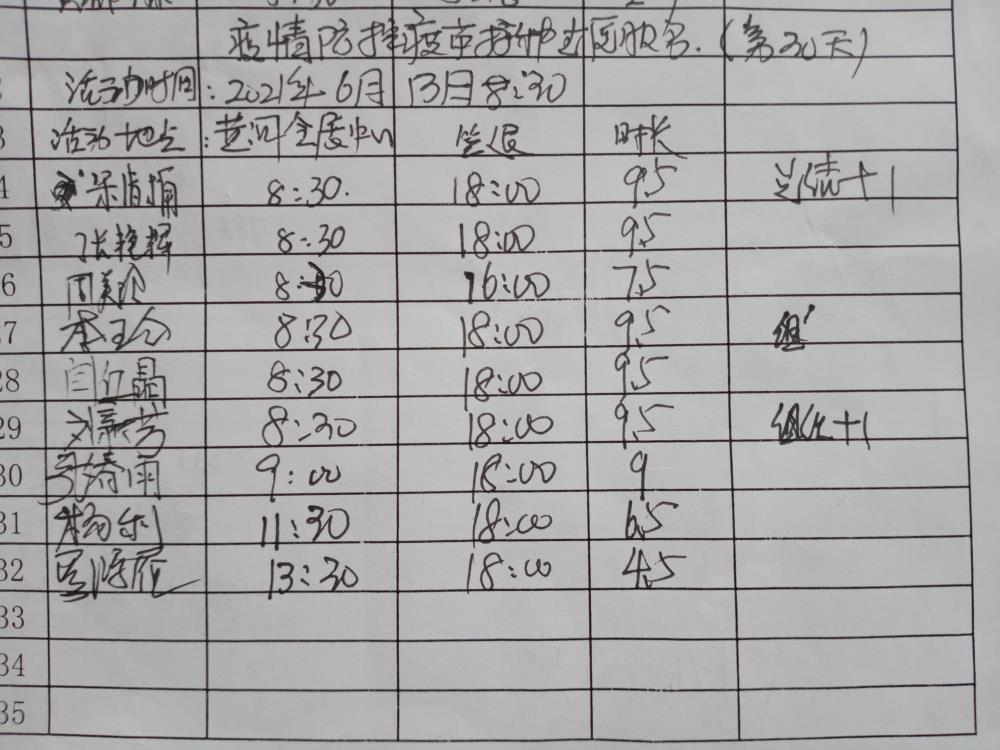 疫情防控疫苗接种志愿服务.(第30天)
活动时间:2021年6月13日8:30
3 活动地点:黄河会展中心 签退 时长
4 8:30. 18:00 9.5 总结+1
5 张艳辉 8:30 18:00 9.5
6 周美玲 8:30 16:00 7.5
27 李玉令 8:30 18:00 9.5
28 闫红晶 8:30 18:00 9.5
29 8:30 18:00 9.5 +1
30 9:00 18:00 9
31 杨利 11:30 18:00 6.5
32 13:30 18:00 4.5
33
34
35